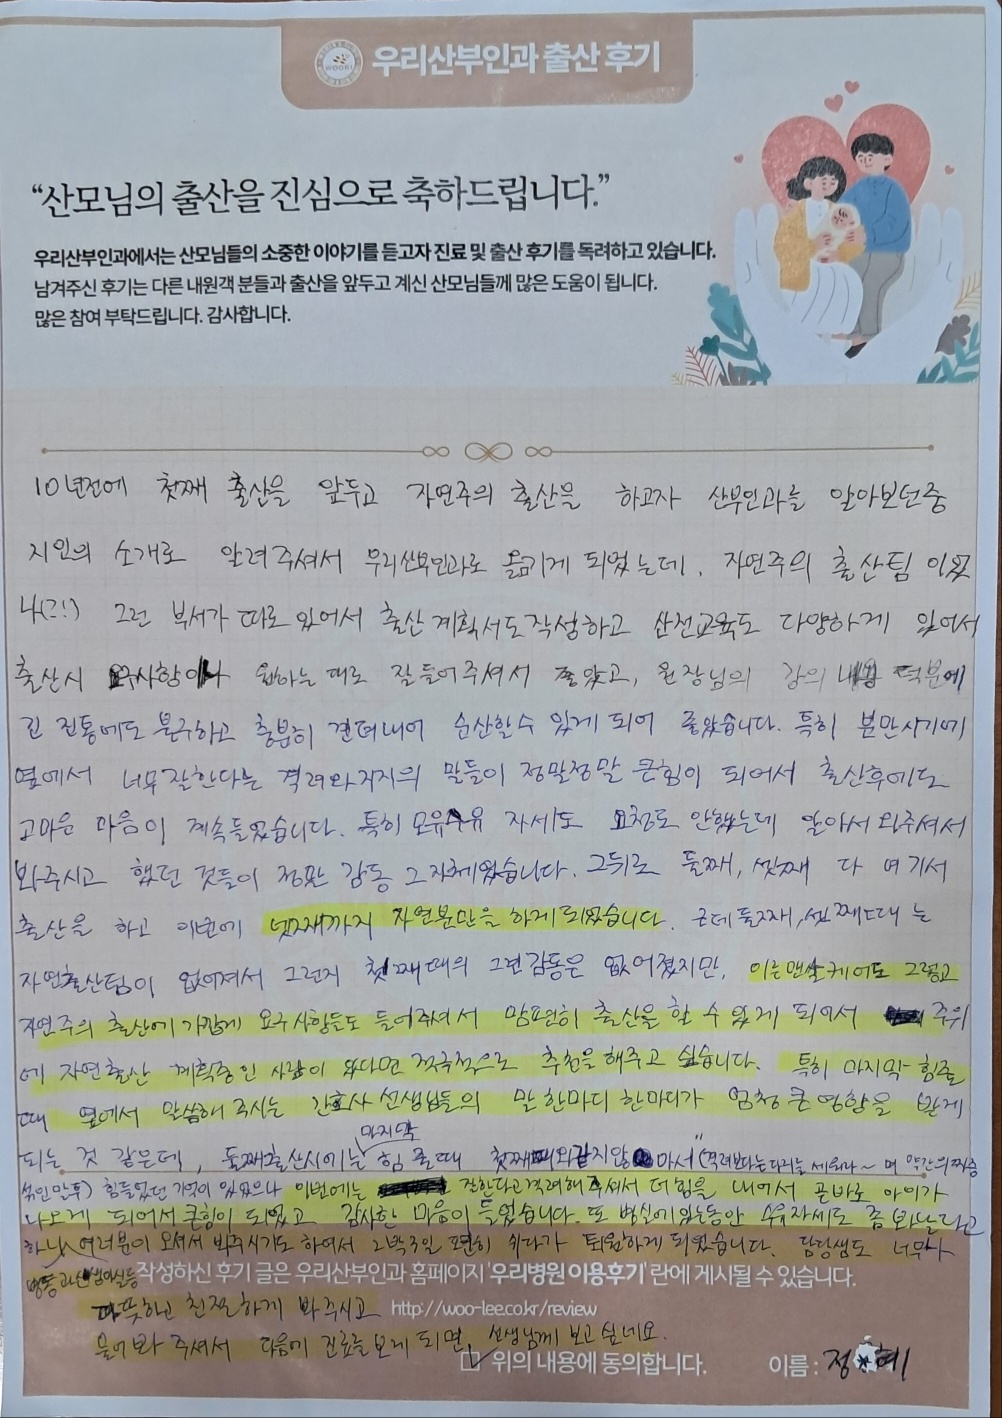 우리산부인과 출산 후기
“산모님의 출산을 진심으로 축하드립니다.”
우리산부인과에서는 산모님들의 소중한 이야기를 듣고자 진료 및 출산 후기를 독려하고 있습니다.
남겨주신 후기는 다른 내원객 분들과 출산을 앞두고 계신 산모님들께 많은 도움이 됩니다.
많은 참여 부탁드립니다. 감사합니다.
10년전에 첫째 출산을 앞두고 자연주의 출산을 하고자 산부인과를 알아보던중
지인의 소개로 알려주셔서 우리산부인과로 옮기게 되었는데, 자연주의 출산팀 이었
나(?!) 그런 부서가 따로 있어서 출산 계획서도 작성하고 산전교육도 다양하게 있어서
출산시 요구사항이나 원하는 때로 잘 들어주셔서 좋았고, 원장님의 강의 덕분에
긴 진통에도 불구하고 충분히 견뎌내어 순산할수 있게 되어 좋았습니다. 특히 분만시기에
옆에서 너무 잘한다는 격려와 지지의 말들이 정말정말 큰힘이 되어서 출산후에도
고마운 마음이 계속들었습니다. 특히 모유수유 자세도 요청도 안했는데 알아서 와주셔서
봐주시고 했던 것들이 정말 감동 그자체였습니다. 그뒤로 둘째, 셋째 다 여기서
출산을 하고 이번에 넷째까지 자연분만을 하게 되었습니다. 근데 둘째, 셋째때는
자연출산팀이 없어져서 그런지 첫째때의 그런 감동은 없어졌지만, 이른맨살케어도 그렇고
자연주의 출산에 가깝게 요구사항들도 들어주셔서 맘편히 출산을 할 수 있게 되어서 주위
에 자연출산 계획중인 사람이 있다면 적극적으로 추천을 해주고 싶습니다. 특히 마지막 힘줄
때 옆에서 말씀해 주시는 간호사 선생님들의 말 한마디 한마디가 엄청 큰 영향을 받게
마지막
되는 것 같은데, 둘째출산시에는 힘 줄때 첫째때와 같지않 마서 ("격려보다는 다리를 세워라~ 며 약간의 짜증
섞인 말투) 힘들었던 기억이 있었으나 이번에는 잘한다고 격려해 주셔서 더 힘을 내어서 곧바로 아이가
나오게 되어서 큰힘이 되었고 감사한 마음이 들었습니다. 또 병실에 있는동안 수유자세도 좀 봐달라고
하니 여러분이 오셔서 봐주시기도 하여서 2박3일 편히 쉬다가 퇴원하게 되었습니다. 담당쌤도 너무나
병동과 신생아실등
작성하신 후기 글은 우리산부인과 홈페이지 '우리병원 이용후기' 란에 게시될 수 있습니다.
따뜻하고 친절하게 봐주시고
http://woo-lee.co.kr/review
물어봐 주셔서 다음에 진료를 보게 되면, 선생님께 보고 싶네요.
위의 내용에 동의합니다. 이름 : 정 혜